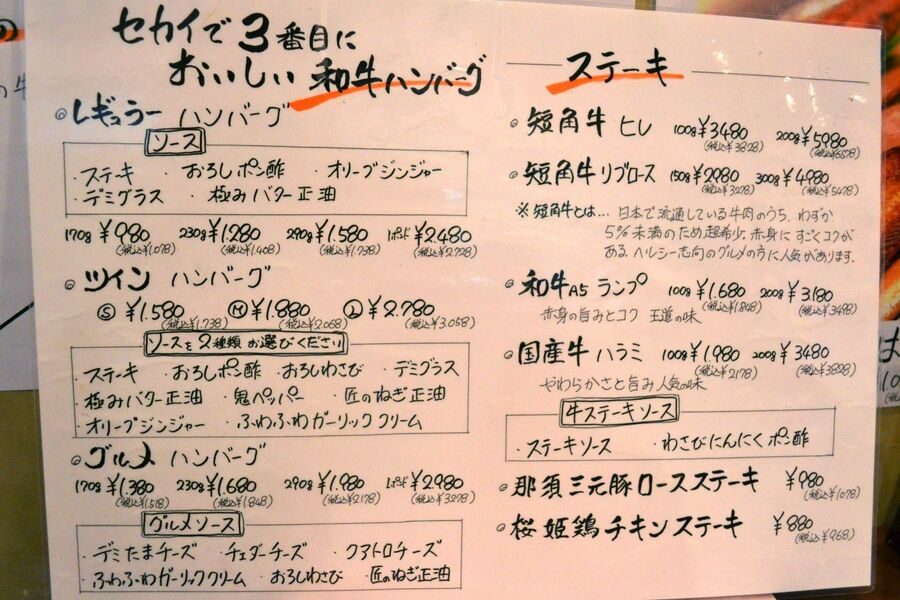 セカイで3番目に
おいしい 和牛ハンバーグ
レギュラー ハンバーグ
ソース
・ステーキ ・おろしポン酢 ・オリーブジンジャー
・デミグラス ・極みバター正油
170g ¥980 230g ¥1.280 290g ¥1.580 1ポンド ¥2.480
(税込¥1.078) (税込¥1.408) (税込¥1.738) (税込¥2.728)
ツイン ハンバーグ
S ¥1.580 M ¥1.880 L ¥2.780
(税込¥1.738) (税込¥2.068) (税込¥3.058)
ソースを2種類お選びください
・ステーキ ・おろしポン酢 ・おろしわさび ・デミグラス
・極みバター正油 ・鬼ペッパー ・匠のねぎ正油
・オリーブジンジャー ・ふわふわガーリッククリーム
グルメ ハンバーグ
170g ¥1.380 230g ¥1.680 290g ¥1.980 1ポンド ¥2.980
(税込¥1.518) (税込¥1.848) (税込¥2.178) (税込¥3.278)
グルメソース
・デミたまチーズ ・チェダーチーズ ・クアトロチーズ
・ふわふわガーリッククリーム ・おろしわさび ・匠のねぎ正油
ステーキ
短角牛 ヒレ 100g ¥3480 200g ¥5980
(税込¥3828) (税込¥6578)
短角牛 リブロース 150g ¥2980 300g ¥4980
(税込¥3278) (税込¥5478)
※短角牛とは… 日本で流通している牛肉のうち、わずか
5%未満のため超希少。赤身にすごくコクが
ある。ヘルシー志向のグルメの方に人気があります。
和牛A5 ランプ 100g ¥1.680 200g ¥3.180
(税込¥1.848) (税込¥3.498)
赤身の旨みとコク 王道の味
国産牛 ハラミ 100g ¥1.980 200g ¥3480
(税込¥2178) (税込¥3828)
やわらかさと旨み人気の味
牛ステーキソース
・ステーキソース ・わさびにんにくポン酢
那須三元豚ロースステーキ ¥980
(税込¥1078)
桜姫鶏チキンステーキ ¥880
(税込¥968)